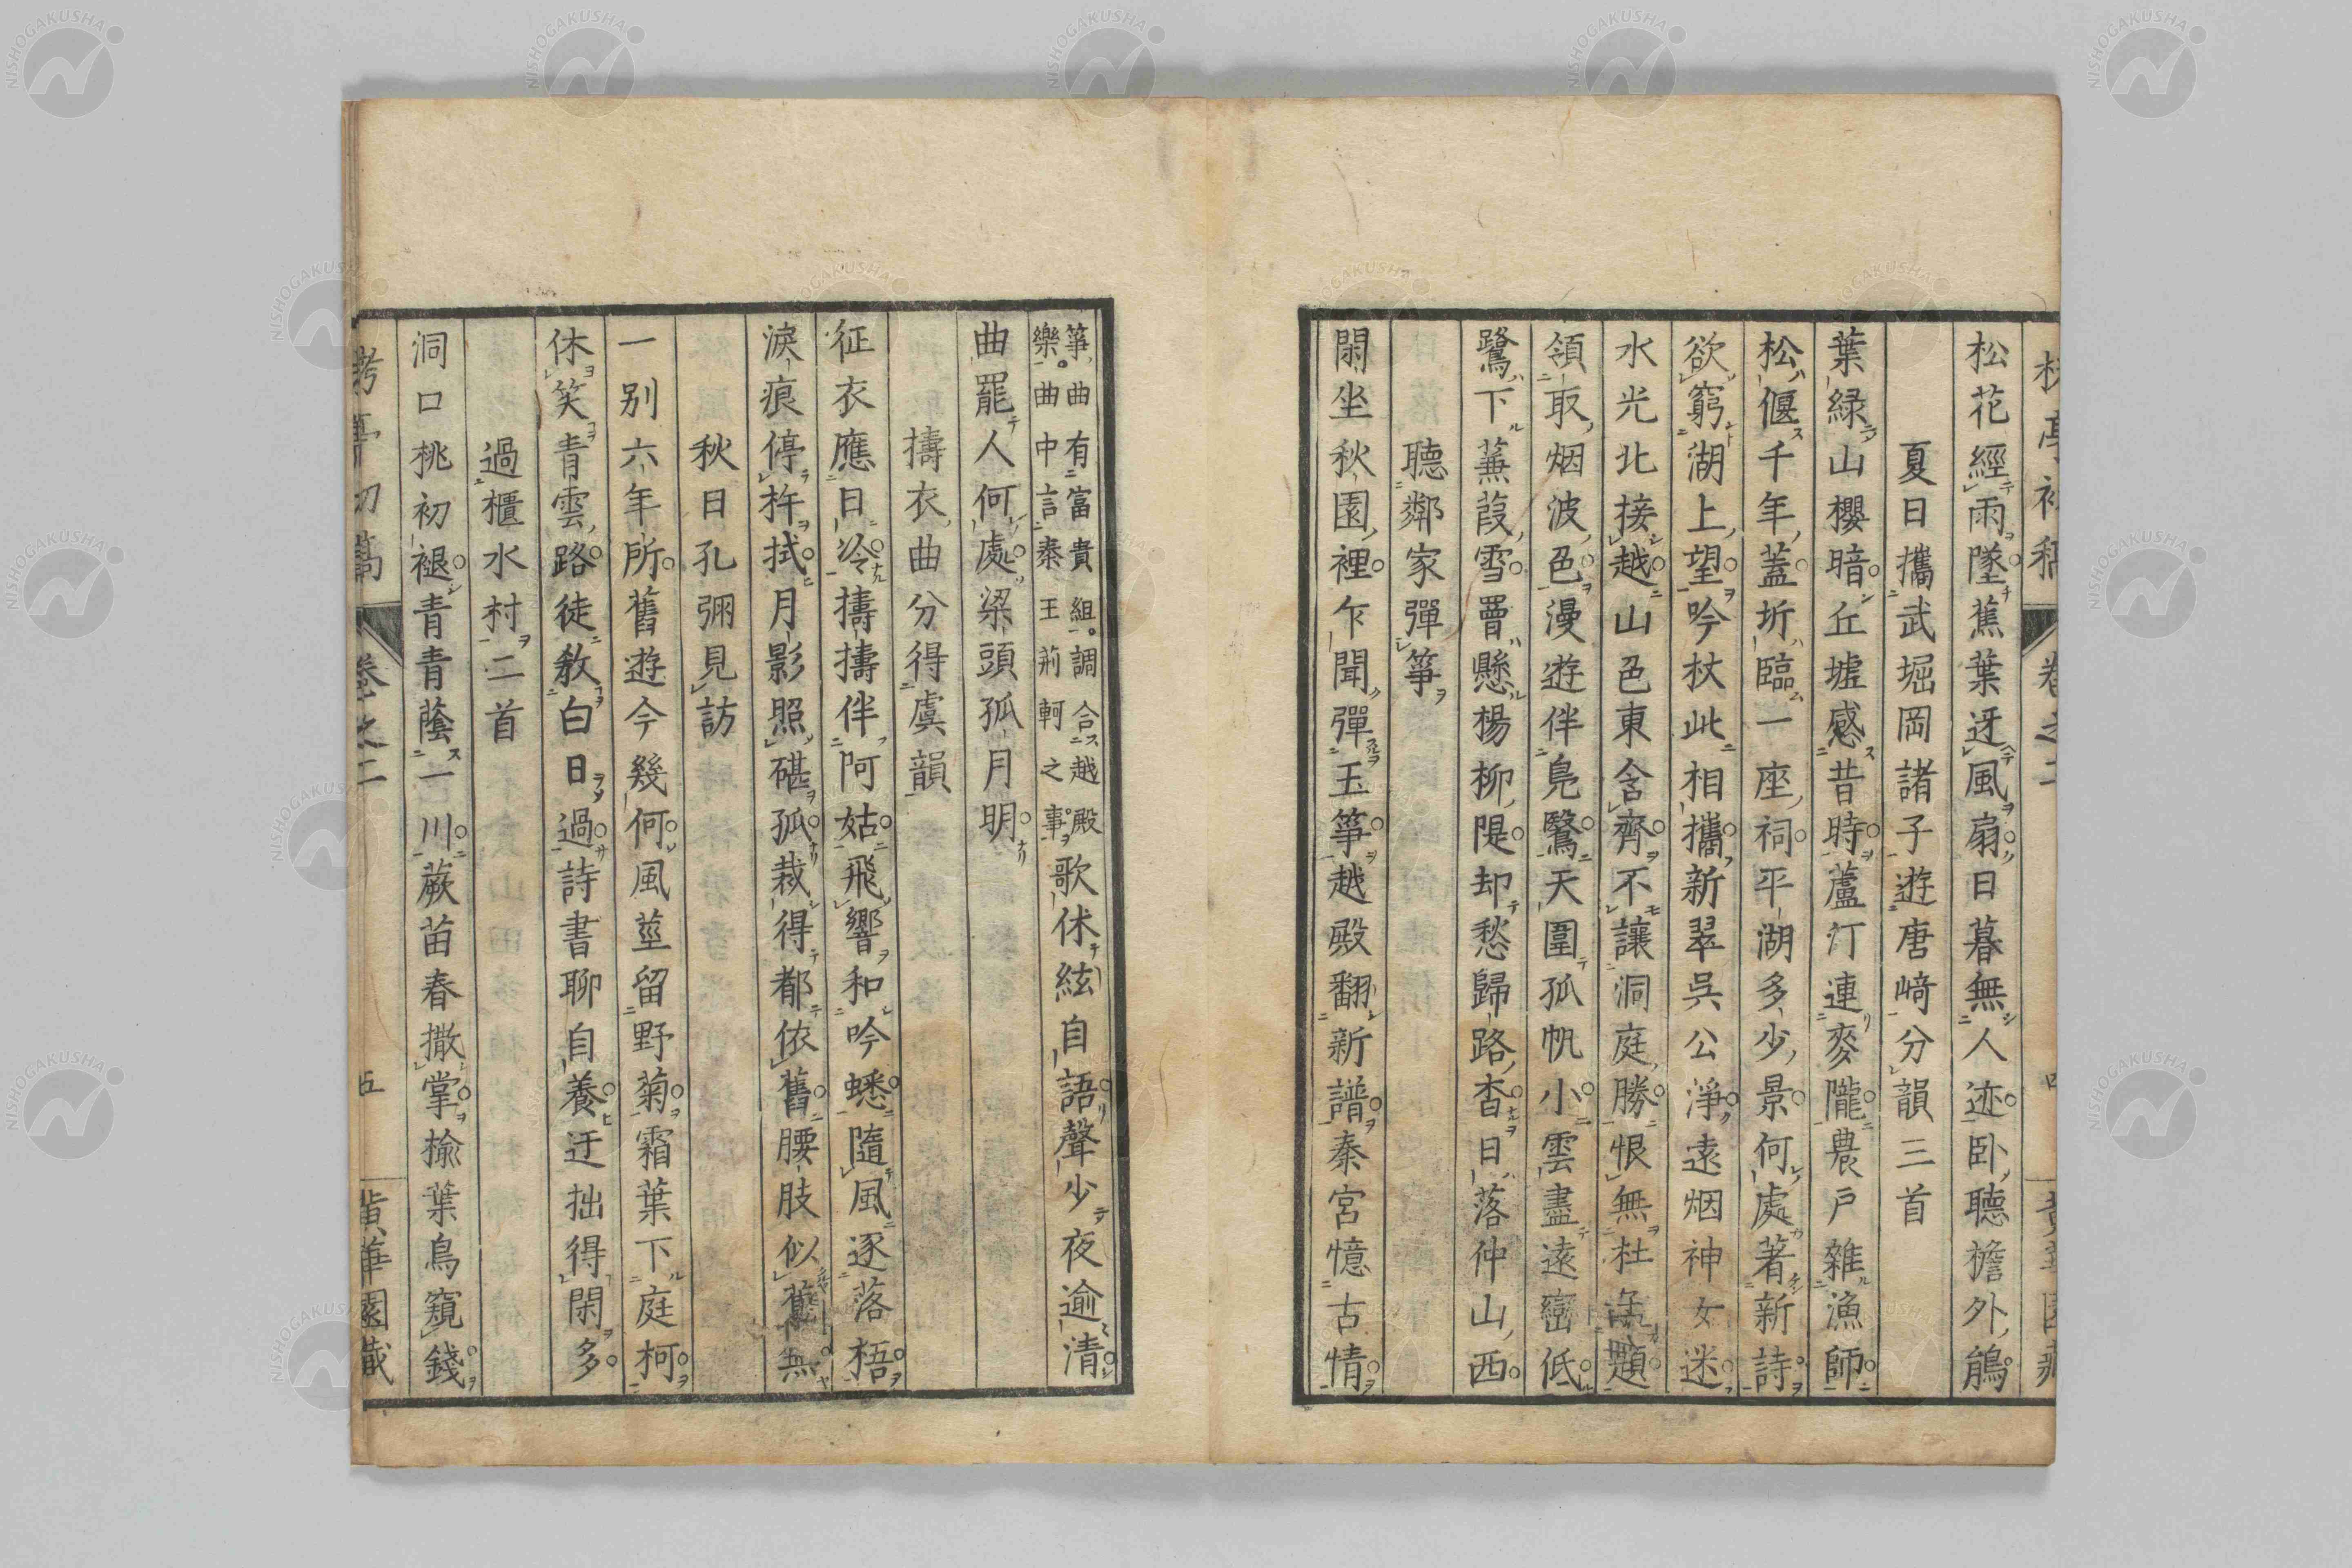 松花經雨墜蕉葉迓風扇日暮無人迹卧聽檐外鵑
夏日攜武堀岡諸子遊唐﨑分韻三首
葉緑山櫻暗丘墟感昔時蘆汀連麥隴農戸雜漁師
松偃千年蓋圻臨一座祠平湖多少景何處著新詩
欲窮湖上望吟杖此相攜新翠呉公淨遠烟神女迷
水光北接越山色東含齊不讓洞庭勝恨無杜題
領取烟波色漫遊伴鳧鷖天圍孤帆小雲盡遠巒低
鷺下蒹葭雪罾懸楊柳隄却愁歸路杳日落仲山西
聽鄰家彈箏
閑坐秋園裡乍聞彈玉箏越殿翻新譜秦宮憶古情
箏曲有富貴組調合越殿
樂曲中言秦王荊軻之事
歌休絃自語聲少夜逾清
曲罷人何處梁頭孤月明
擣衣曲分得虞韻
征衣應日冷擣擣伴阿姑飛響和吟蟋隨風逐落梧
淚痕停杵拭月影照碪孤裁得都依舊腰肢似舊無
秋日孔彌見訪
一別六年所舊遊今幾何風莖留野菊霜葉下庭柯
休笑青雲路徒教白日過詩書聊自養迂拙得閑多
過櫃水村二首
洞口桃初褪青青蔭一川蕨苗春撒掌楡葉鳥窺錢
卷之二
五